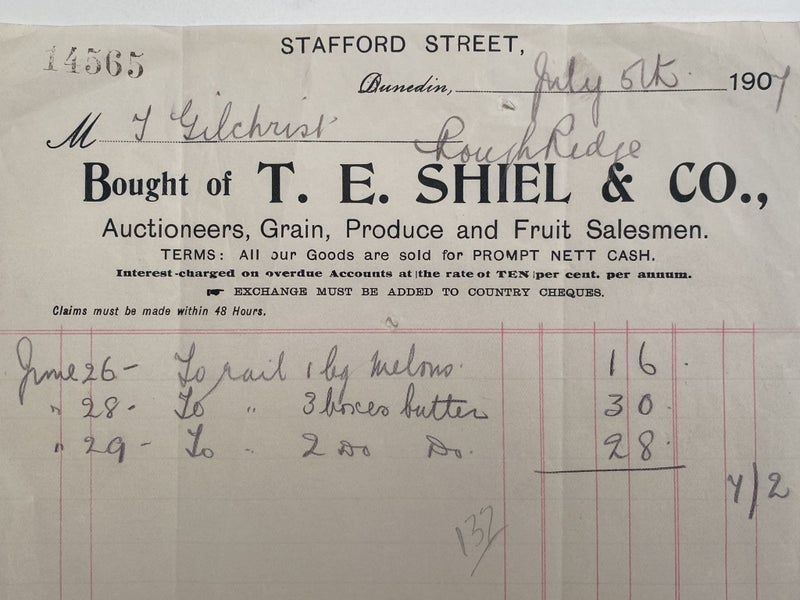 STAFFORD STREET,
14565
Dunedin, July 5th 1907
M T Gilchrist Rough Ridge
Bought of T. E. SHIEL & CO.,
Auctioneers, Grain, Produce and Fruit Salesmen.
TERMS: All our Goods are sold for PROMPT NETT CASH.
Interest charged on overdue Accounts at the rate of TEN per cent. per annum.
☛ EXCHANGE MUST BE ADDED TO COUNTRY CHEQUES.
Claims must be made within 48 Hours.
June 26 - To rail 1 bg Melons. 1 6
" 28 - To " 3 boxes butter 3 0
" 29 - To " 2 Do Do. 2 8
7/2
132